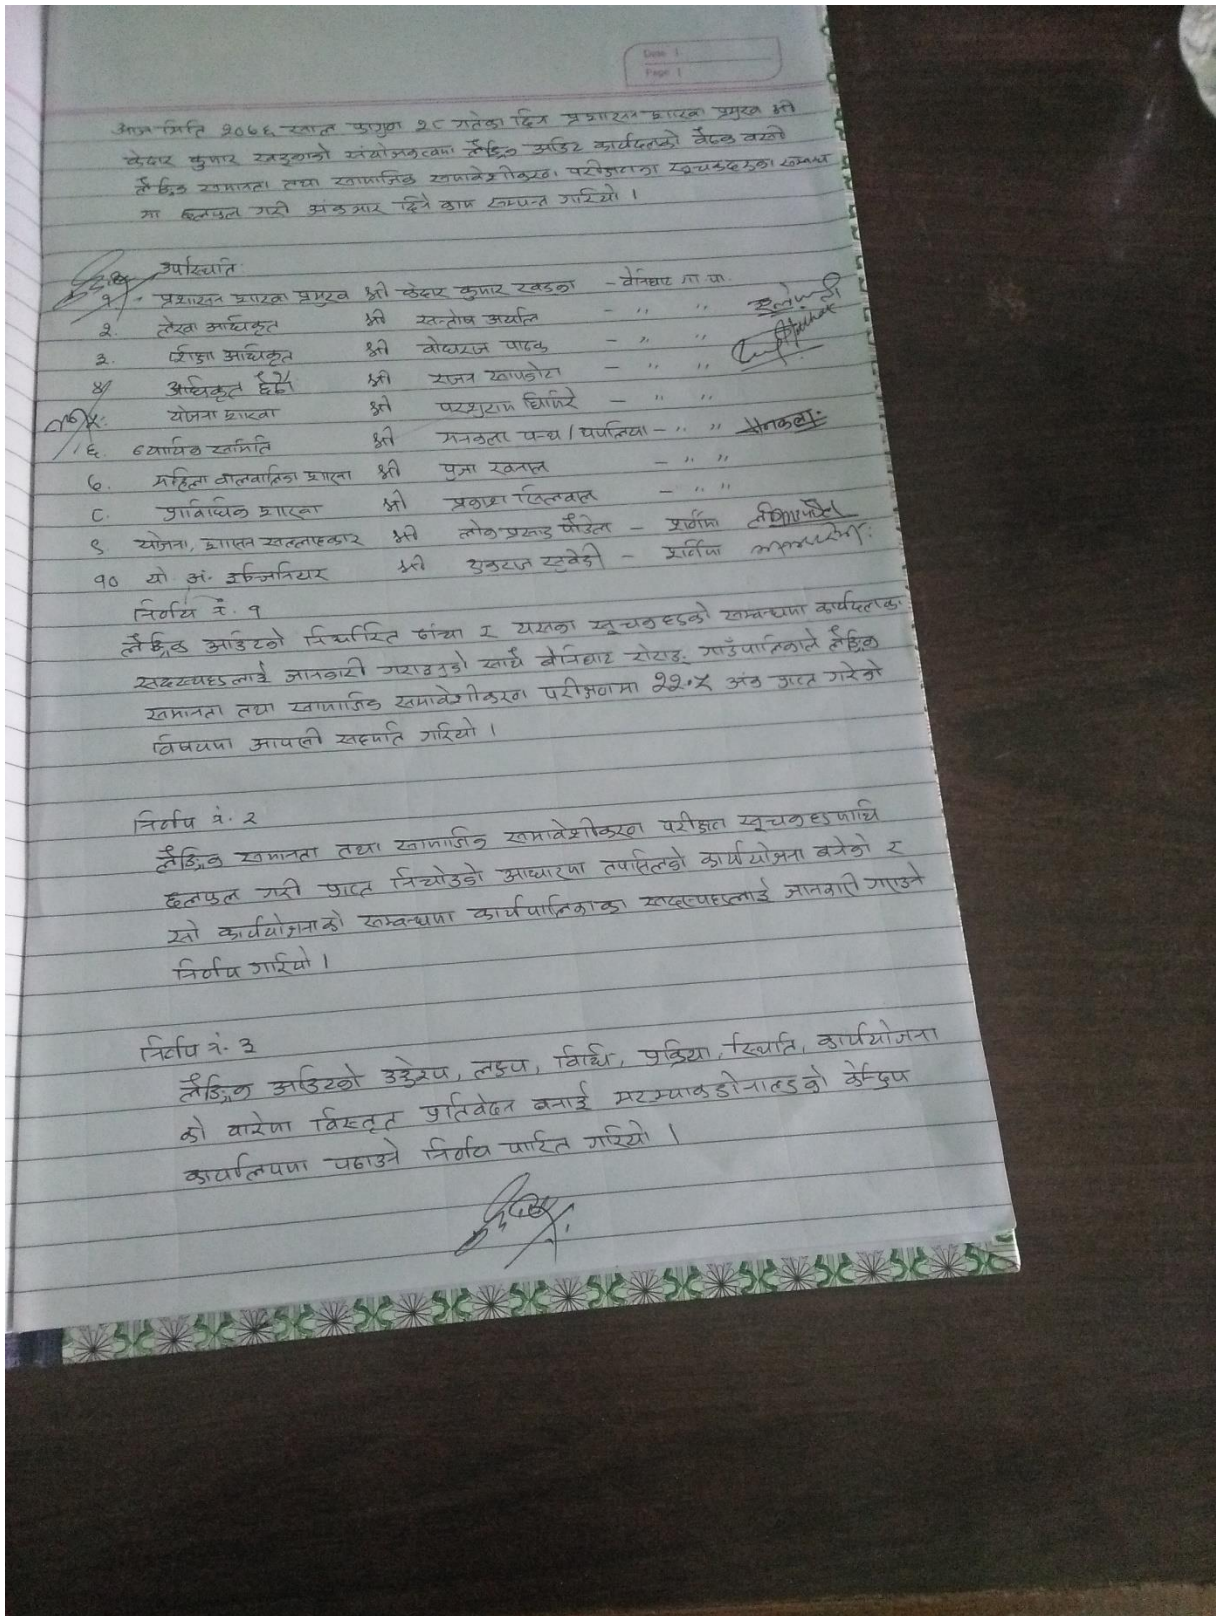 Date :
Page :
आज मिति २०७६ साल फागुन २८ गतेका दिन प्रशासन शाखा प्रमुख श्री
केदार कुमार खड्काको संयोजकत्वमा लैङ्गिक अडिट कार्यदलको बैठक बसी
लैङ्गिक समानता तथा सामाजिक समावेशीकरण परीक्षणका सूचकहरुका सम्बन्ध
मा छलफल गरी अंकभार दिने काम सम्पन्न गरियो ।
उपस्थिति
१. प्रशासन शाखा प्रमुख श्री केदार कुमार खड्का - बेनिघाट गा.पा.
२. लेखा अधिकृत श्री सन्तोष अर्याल - " "
३. शिक्षा अधिकृत श्री बोधराज पाठक - " "
४ अधिकृत छैटौं श्री राजन सापकोटा - " "
५. योजना शाखा श्री परशुराम घिमिरे - " "
६. न्यायिक समिति श्री मनकला पन्थ / - " " मनकला
७. महिला बालबालिका शाखा श्री पुजा खनाल - " "
८. प्राविधिक शाखा श्री प्रकाश सिलवाल - " "
९ योजना, शासन सल्लाहकार श्री लोक प्रसाद पौडेल -
१० यो. अं. इन्जिनियर श्री -
निर्णय नं. १
लैङ्गिक अडिटको निर्धारित ढांचा र यसका सूचकहरुको सम्बन्धमा कार्यदलका
सदस्यहरुलाई जानकारी गराउनुको साथै बेनिघाट रोराङ्ग गाउँपालिकाले लैङ्गिक
समानता तथा सामाजिक समावेशीकरण परीक्षणमा २२.५ अंक प्राप्त गरेको
विषयमा आपसी सहमति गरियो ।
निर्णय नं. २
लैङ्गिक समानता तथा सामाजिक समावेशीकरण परीक्षण सूचकहरुमाथि
छलफल गरी प्राप्त निचोडको आधारमा तपसिलको कार्ययोजना बनेको र
सो कार्ययोजनाको सम्बन्धमा कार्यपालिकाका सदस्यहरुलाई जानकारी गराउने
निर्णय गरियो ।
निर्णय नं. ३
लैङ्गिक अडिटको उद्देश्य, लक्ष्य, विधि, प्रक्रिया, स्थिति, कार्ययोजना
को बारेमा विस्तृत प्रतिवेदन बनाई मटम्याकडोनाल्डको केन्द्रिय
कार्यालयमा पठाउने निर्णय पारित गरियो ।